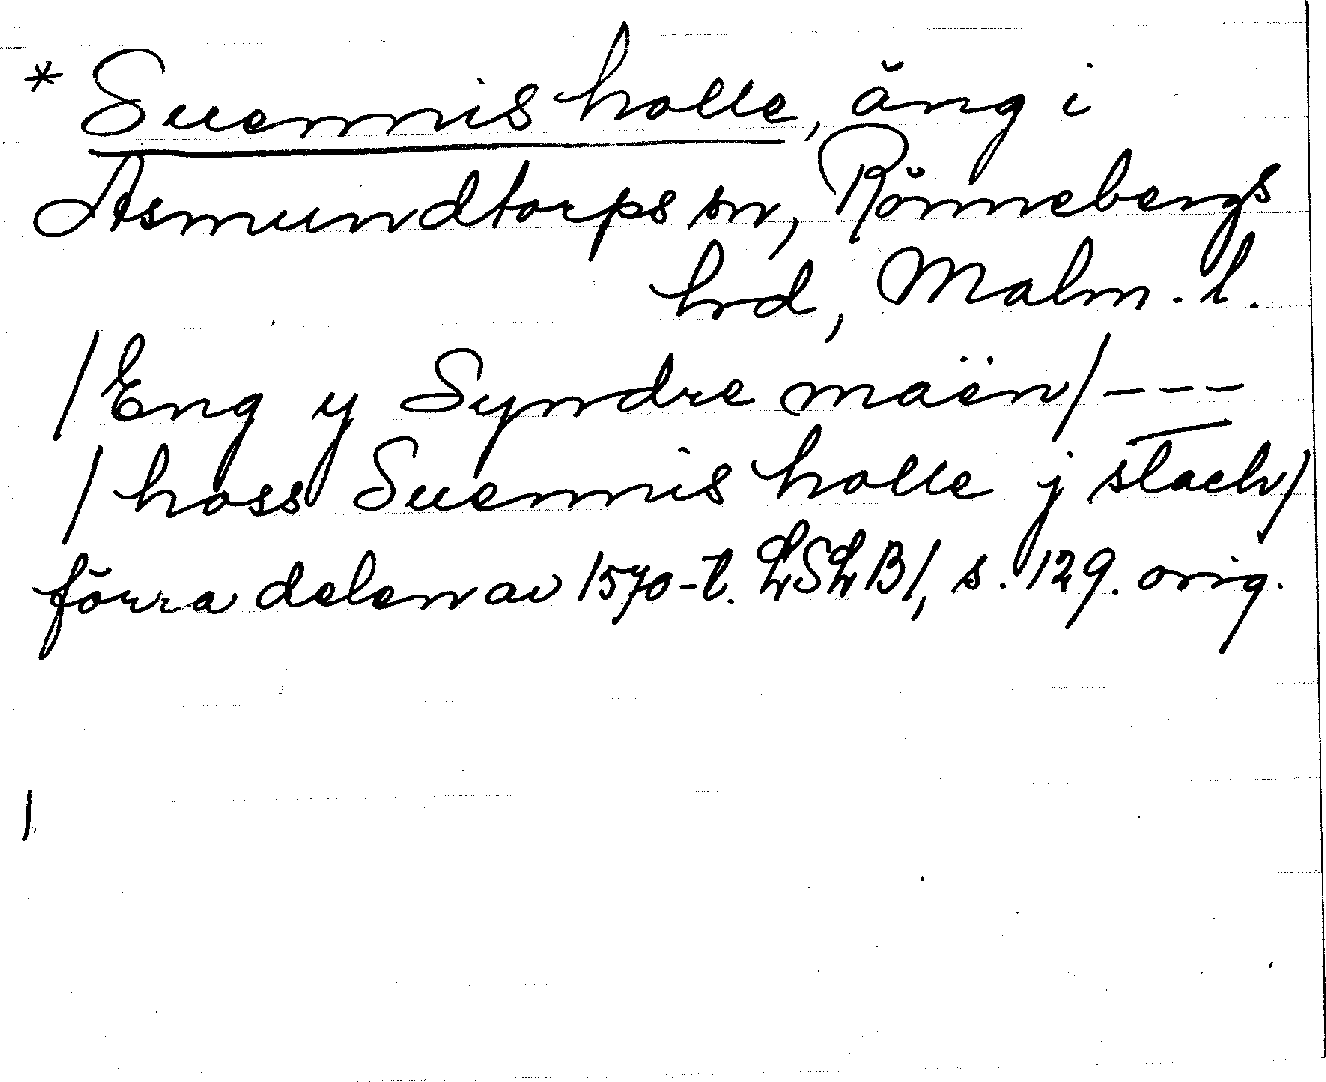 * Suennis holle, äng i
Asmundtorps sn, Rönnebergs
hrd, Malm. l.
/Eng y Syndre maën/ ---
/hoss Suennis holle j stach/
förra delen av 1570-t. LSLB1, s. 129. orig.